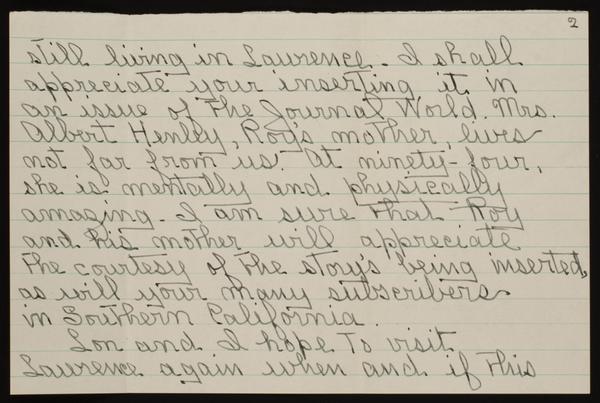 2
still living in Lawrence. I shall
appreciate your inserting it in
an issue of The Journal World. Mrs.
Albert Henley, Roy's mother, lives
not far from us. At ninety-four,
she is mentally and physically
amazing. I am sure that Roy
and his mother will appreciate
the courtesy of the story's being inserted,
as will your many subscribers
in Southern California.
Lon and I hope to visit
Lawrence again when and if this